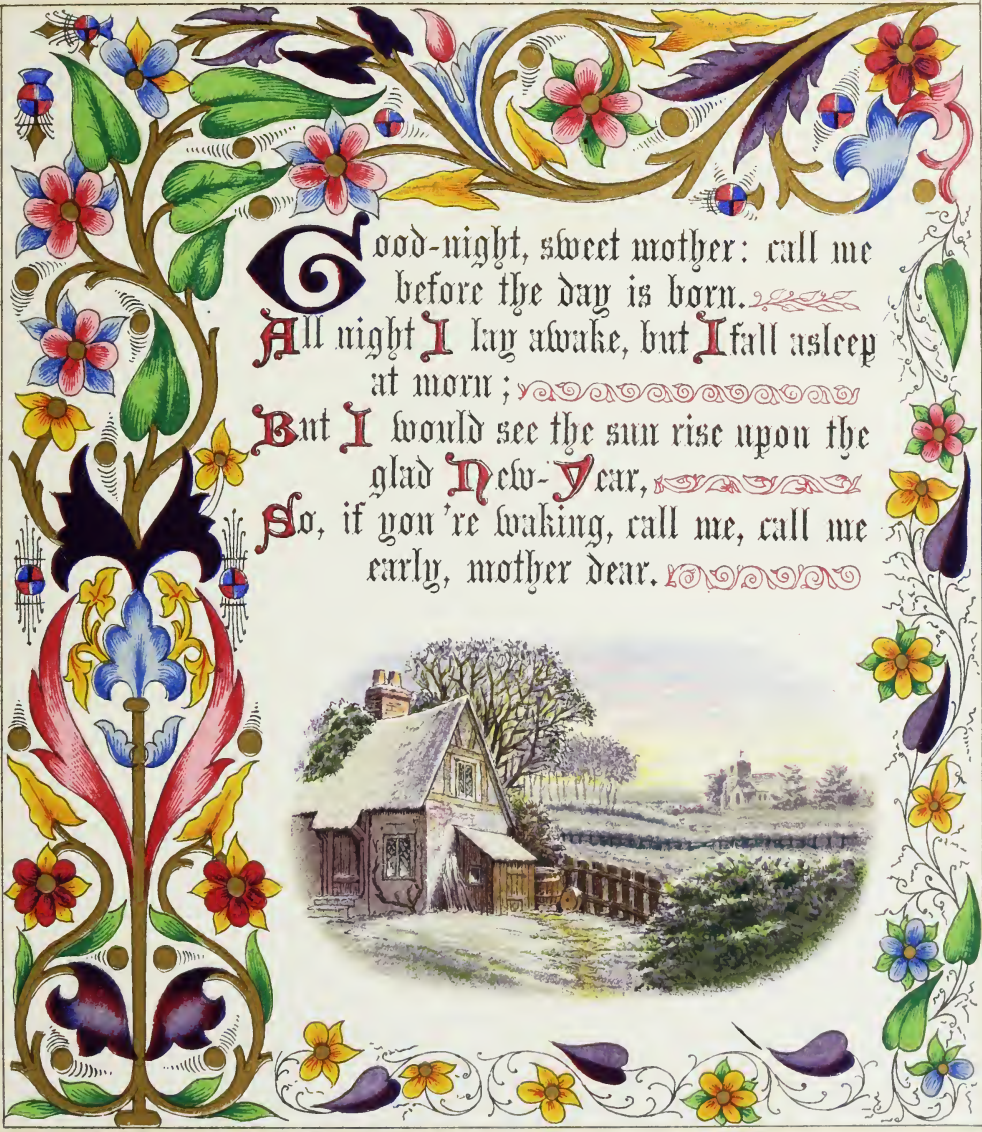 Good-night, sweet mother: call me
before the day is born.
All night I lay awake, but I fall asleep
at morn;
But I would see the sun rise upon the
glad New-Year,
So, if you're waking, call me, call me
early, mother dear.